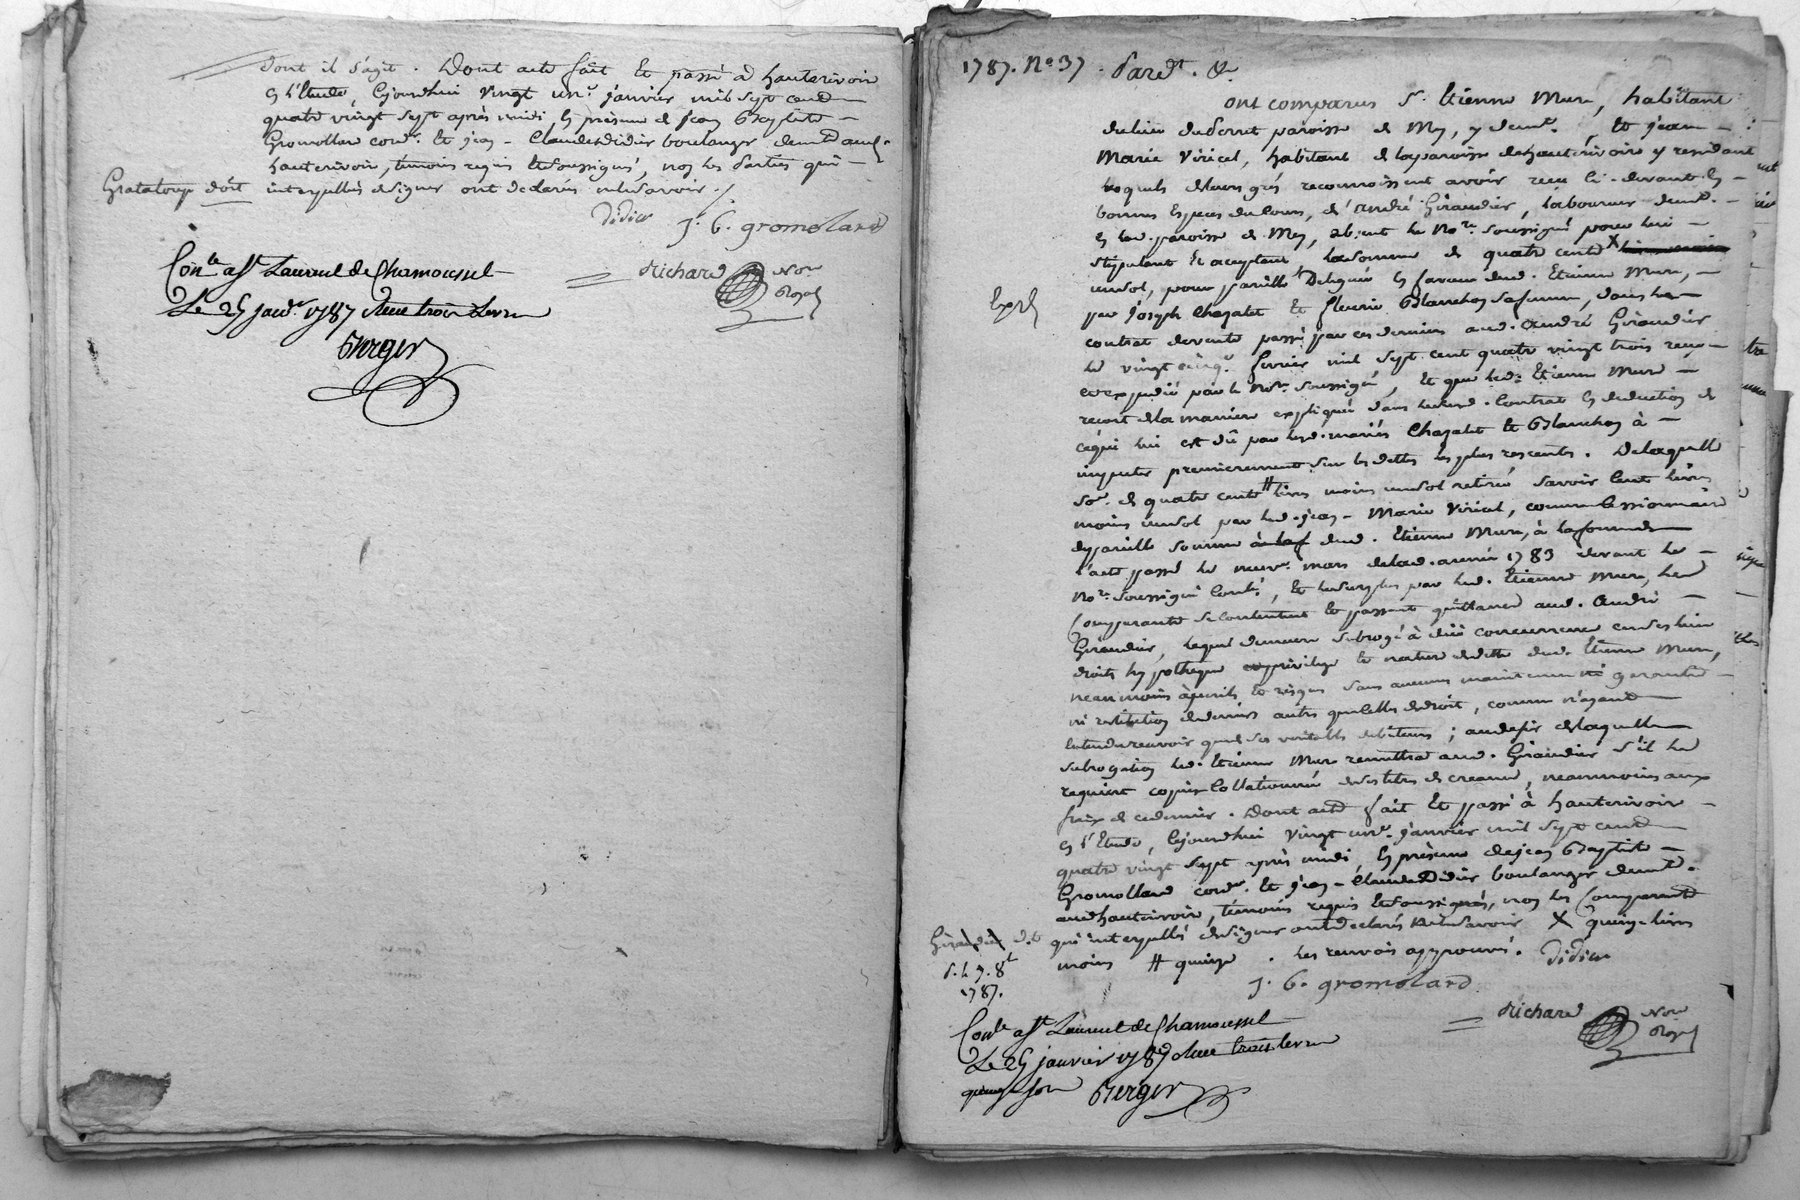 dont il s'agit. Dont acte fait Et passé a hauterivoir
En l'Etude, Cejourdhui vingt un.e janvier mil sept cent
quatre vingt sept après midi, En présence de jean Baptiste
Gromollard cord.r Et jean-Claude didier boulanger dem.t aud.
hauterivoir, témoins requis Et soussignés, non les parties qui
Grataloup doit
interpellés de signer ont declarés ne le savoir./.
Didier
J. B. gromolard
Richard
Not.re
Royal
Con.lé a S.t Laurent de Chamousset
Le 25 janv.r 1787 Reçu trois Livres
Berger
1787. N.o 37. Pard.t &.
ont comparus S.r Etienne Mure, habitant
du lieu du paroisse de Mey, y dem.t, Et jean
Marie Viricel, habitant de la paroisse de hauterivoire y residant
lesquels de leurs grés reconnoissent avoir reçu ci-devant En
bonnes Especes du Cours, d'André Giraudier, laboureur dem.t
En lad. paroisse de Mey, absent le No.re soussigné pour lui
stipulant Et acceptant, la somme de quatre cents X
un sol, pour pareille Deleguée En faveur dud. Etienne Mure,
Exp.é
par Joseph Chazalet Et fleurie Blanchon sa femme, dans le
contrat de vente passé par ces derniers aud. André Giraudier
le vingt cinq fevrier mil sept cent quatre vingt trois reçu
et expedié par le No.re soussigné, Et que led. Etienne Mure
reçoit de la maniere expliquée dans led. Contrat En deduction de
ce qui lui est dû par lesd. mariés Chazalet Et Blanchon à
imputer premierement sur les dettes les plus rescentes. De laquelle
So.e de quatre cents # livres moins un sol retiré savoir Cent livres
moins un sol par led. jean-Marie Viricel, comme Cessionnaire
de pareille somme dud. Etienne Mure, à la forme de
l'acte passé le neuv.e mars de lad. année 1783 devant le
No.re soussigné Con.lé, Et le surplus par led. Etienne Mure, les
Comparants se contentent Et passent quittance aud. André
Giraudier, lequel demeure subrogé à düe concurrence
droits hypotheque privilege Et nature de dette dud. Etienne Mure,
neanmoins à perils Et risques sans aucune maintenue ni garantie
ni restitution de deniers autres que celles de droit, comme n'ayant
Entendu recevoir que de ses veritables debiteurs; au desir de laquelle
subrogation led. Etienne Mure remettra aud. Giraudier s'il le
requiert copies Collationnés de ses titres de creance, neanmoins aux
frais de ce dernier. Dont acte fait Et passé à hauterivoir
En l'Etude, Cejourdhui vingt un.e janvier mil sept cent
quatre vingt sept après midi, En présence de jean Baptiste
Gromollard cord.r Et jean-Claude Didier boulanger dem.t
aud hauterivoir, témoins requis Et soussignés, non les Comparants
Giraudier d.t
qui interpellés de signer ont declarés ne le savoir X quinze livres
moins # quinze. les renvois approuvés.
Didier
1787.
J. B. gromolard
Richard
Not.re
Royal
Con.lé a S.t Laurent de Chamousset
Le 25 janvier 1787 Reçu trois Livres
quinze sols
Berger